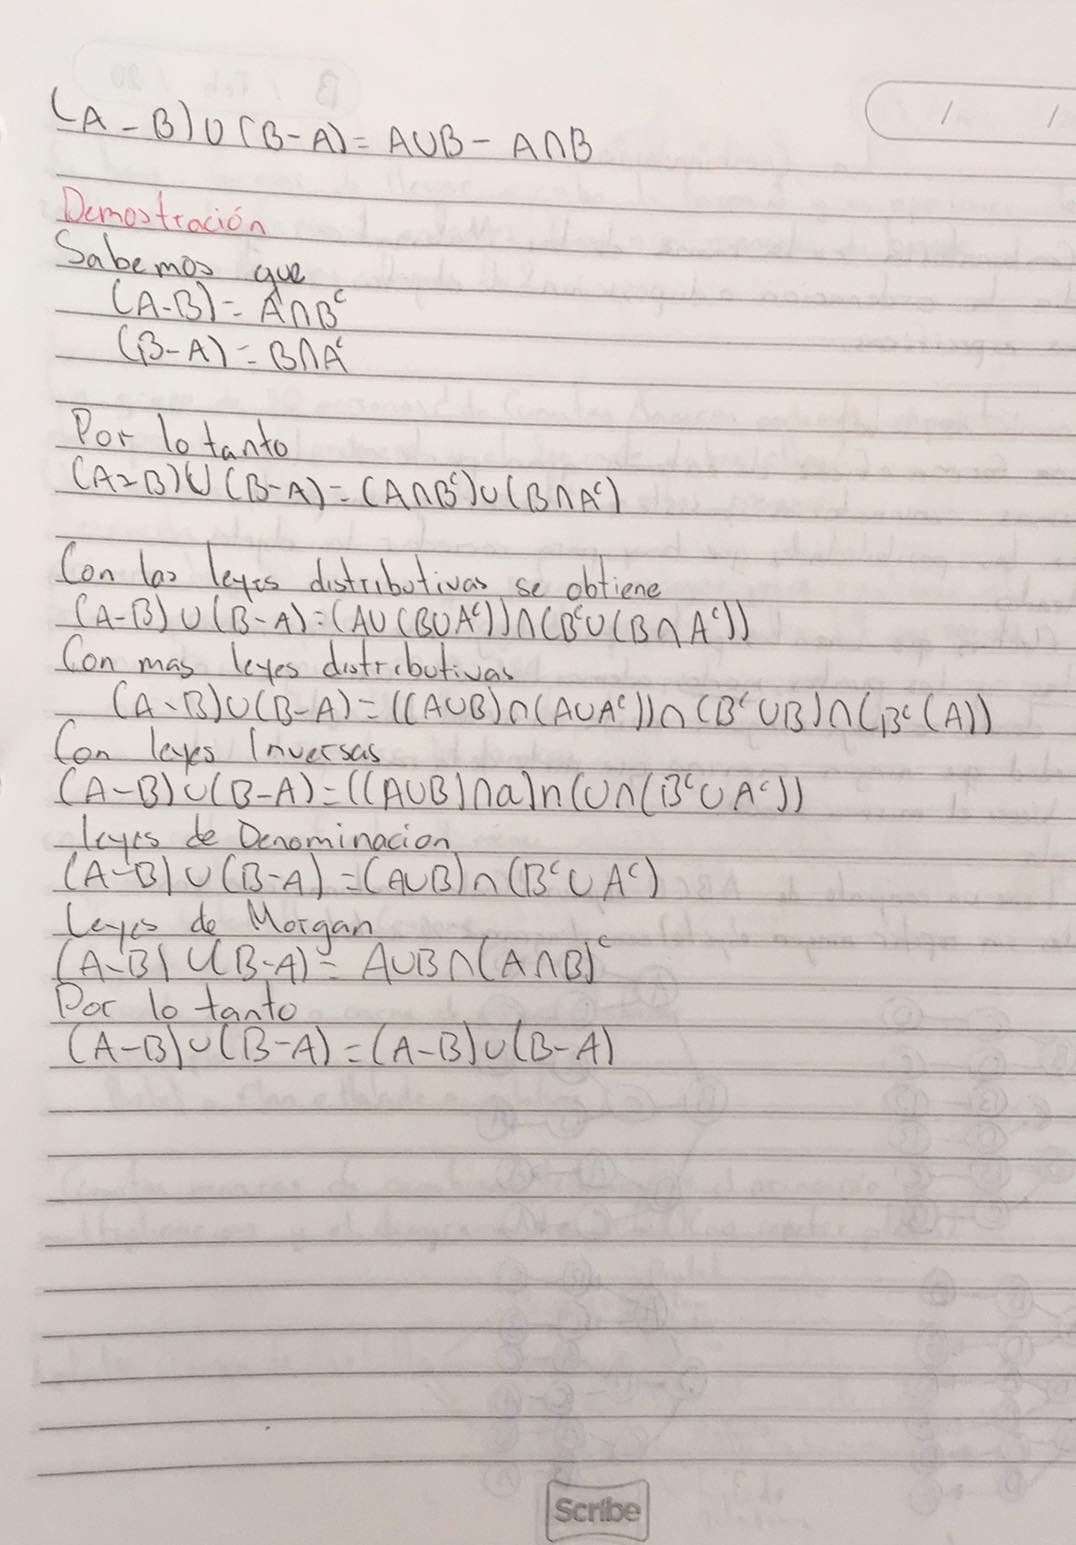 (A-B)∪(B-A)=A∪B-A∩B
/ /
Demostración
Sabemos que
(A-B)=A∩Bᶜ
(B-A)=B∩Aᶜ
Por lo tanto
(A-B)∪(B-A)=(A∩Bᶜ)∪(B∩Aᶜ)
Con las leyes distributivas se obtiene
(A-B)∪(B-A)=(A∪(B∪Aᶜ))∩(Bᶜ∪(B∩Aᶜ))
Con mas leyes distributivas
(A-B)∪(B-A)=((A∪B)∩(A∪Aᶜ))∩(Bᶜ∪B)∩(Bᶜ(A))
Con leyes Inversas
(A-B)∪(B-A)=((A∪B)∩a)∩(U∩(Bᶜ∪Aᶜ))
leyes de Denominacion
(A-B)∪(B-A)=(A∪B)∩(Bᶜ∪Aᶜ)
Leyes de Morgan
(A-B)∪(B-A)=A∪B∩(A∩B)ᶜ
Por lo tanto
(A-B)∪(B-A)=(A-B)∪(B-A)
Scribe